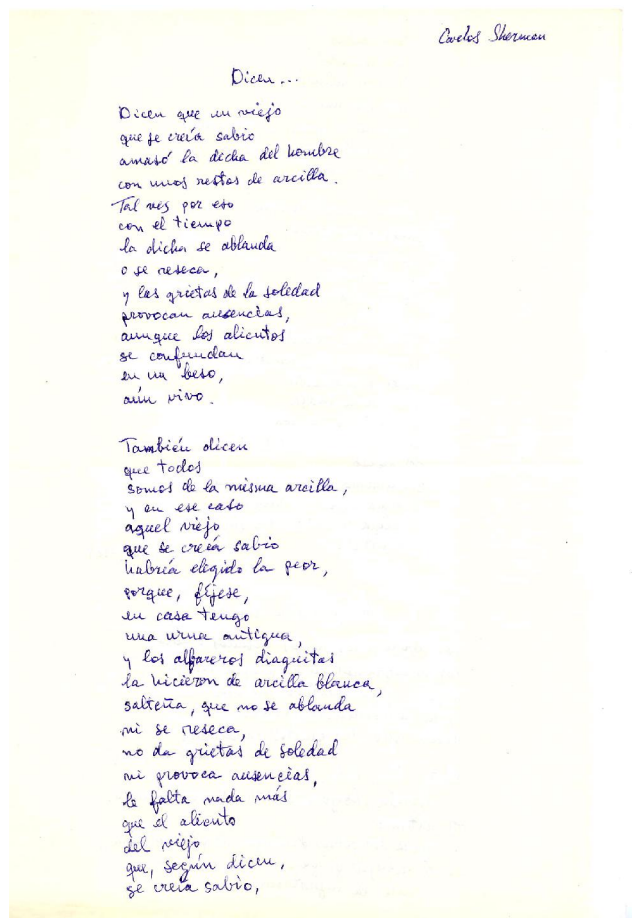 Carlos Sherman
Dicen...
Dicen que un viejo
que se creía sabio
amasó la dicha del hombre
con unos restos de arcilla.
Tal vez por eso
con el tiempo
la dicha se ablanda
o se reseca,
y las grietas de la soledad
provocan ausencias,
aunque los alientos
se confundan
en un beso,
aún vivo.
También dicen
que todos
somos de la misma arcilla,
y en ese caso
aquel viejo
que se creía sabio
habría elegido la peor,
porque, fíjese,
en casa tengo
una urna antigua,
y los alfareros diaguitas
la hicieron de arcilla blanca,
salteña, que no se ablanda
ni se reseca,
no da grietas de soledad
ni provoca ausencias,
le falta nada más
que el aliento
del viejo
que, según dicen,
se creía sabio,